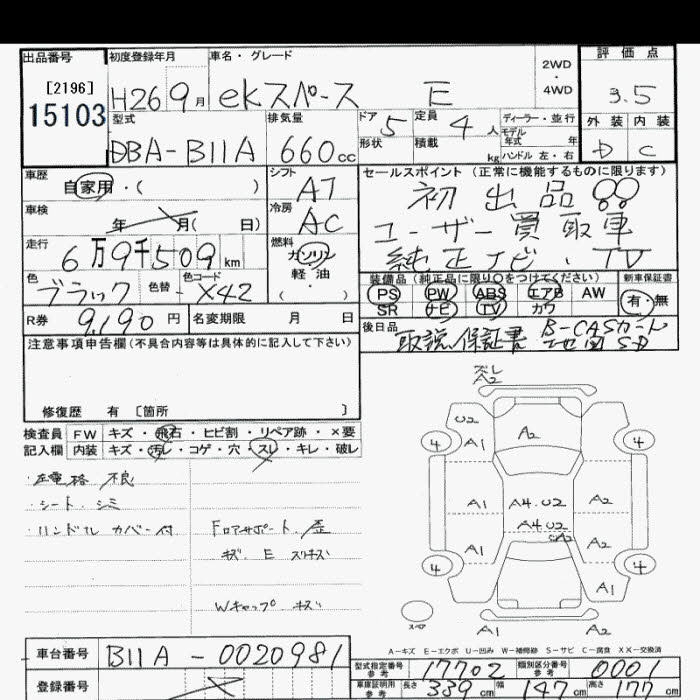 出品番号 初度登録年月 車名・グレード 評価点
[2196]
15103
H26 9月 ekスペース E
2WD・4WD
3.5
型式 排気量 ドア 定員 ディーラー・並行 外装 内装
DBA-B11A 660cc 5 4人 モデル年式 年 D C
形状 積載 kg ハンドル 左・右
車歴 シフト セールスポイント (正常に機能するものに限ります)
自家用・( ) AT 初出品
車検 冷房 ユーザー買取車
年 月( 日) AC 純正ナビ、TV
走行 燃料
6万9千509km ガソリン 軽油 ( ・ )
装備品 (純正品に限り○をつけてください) 新車保証書
色 色替 色コード
ブラック X42
PS PW ABS エアB AW 有・無
SR ナビ TV カワ
R券 9,190円 名変期限 月 日
後日品 取説 保証書 B-CASカード
地図SD
注意事項申告欄(不具合内容等は具体的に記入して下さい)
修復歴 有 [箇所 ]
検査員 FW キズ・飛石・ヒビ割・リペア跡・×要
記入欄 内装 キズ・汚レ・コゲ・穴・スレ・キレ・破レ
・左電格 不良
・シート シミ
・ハンドル カバー付
Fロアサポート 歪
キズ E スリキズ
Wキャップ キズ
ズレ
A2
U2
A1 A2
4 4
A1 A4.U2 A2
A4U2
A1 A2
4 4
A1
スペア A1 A2
A-キズ E-エクボ U-凹み W-補修跡 S-サビ C-腐食 XX-交換済
車台番号 B11A-0020981
登録番号
型式指定番号 参考 17702 類別区分番号 参考 0001
車庫証明用 参考 長さ 339cm 幅 147cm 高さ 177cm